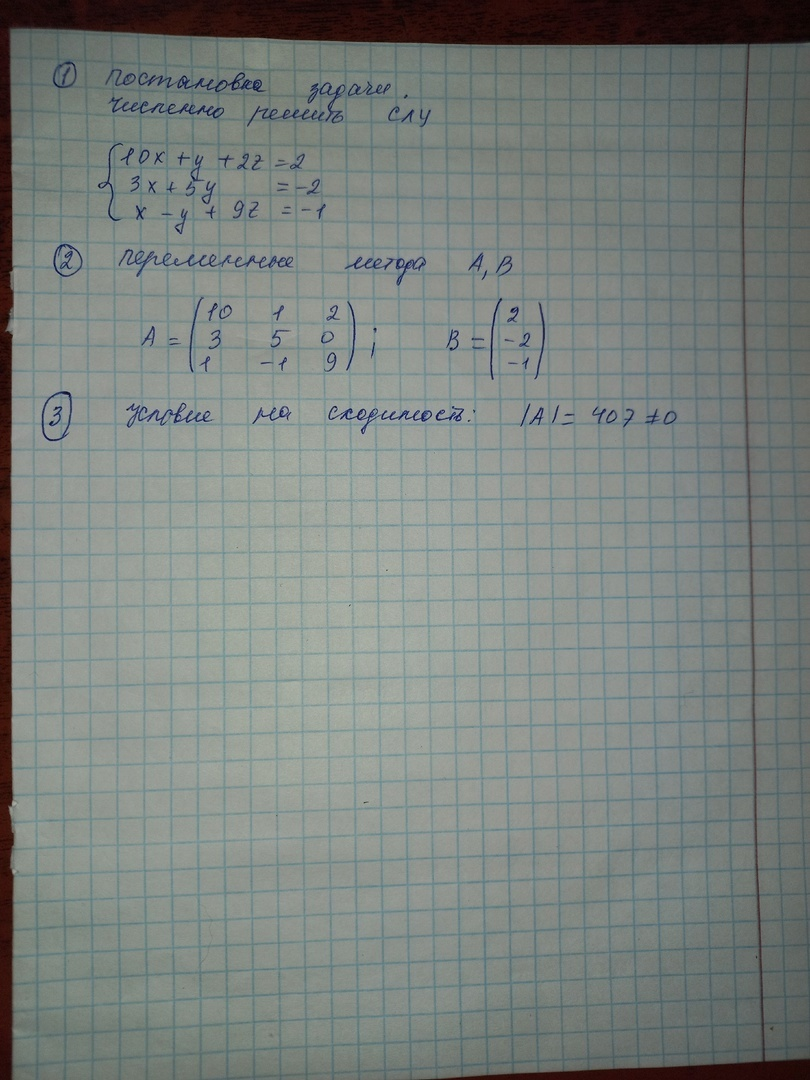 ① Постановка задачи.
численно решить СЛУ
10x + y + 2z = 2
3x + 5y = -2
x - y + 9z = -1
② переменные метода A, B
A = (10 1 2
3 5 0
1 -1 9) ; B = (2
-2
-1)
③ Условие на сходимость: |A| = 407 ≠ 0